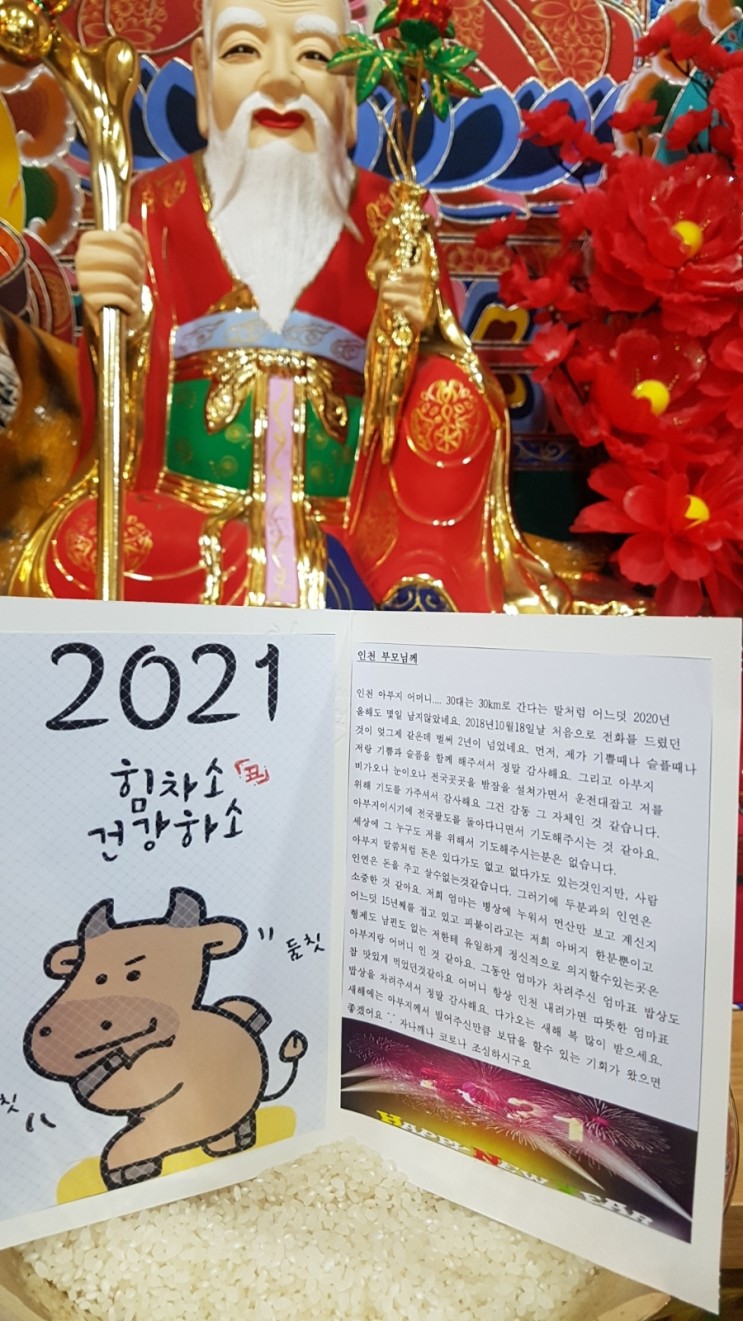 2021
힘차소
丑
건강하소
둠칫
칫
인천 부모님께
인천 아부지 어머니.... 30대는 30km로 간다는 말처럼 어느덧 2020년
올해도 몇일 남지않았네요. 2018년10월18일날 처음으로 전화를 드렸던
것이 엊그제 같은데 벌써 2년이 넘었네요. 먼저, 제가 기쁠때나 슬플때나
저랑 기쁨과 슬픔을 함께 해주셔서 정말 감사해요. 그리고 아부지
비가오나 눈이오나 전국곳곳을 밤잠을 설쳐가면서 운전대잡고 저를
위해 기도를 가주셔서 감사해요 그건 감동 그 자체인 것 같습니다.
아부지이시기에 전국팔도를 돌아다니면서 기도해주시는 것 같아요.
세상에 그 누구도 저를 위해서 기도해주시는분은 없습니다.
아부지 말씀처럼 돈은 있다가도 없고 없다가도 있는것인지만, 사람
인연은 돈을 주고 살수없는것같습니다. 그러기에 두분과의 인연은
소중한 것 같아요. 저희 엄마는 병상에 누워서 먼산만 보고 계신지
어느덧 15년째를 접고 있고 피붙이라고는 저희 아버지 한분뿐이고
형제도 남편도 없는 저한테 유일하게 정신적으로 의지할수있는곳은
아부지랑 어머니 인 것 같아요. 그동안 엄마가 차려주신 엄마표 밥상도
참 맛있게 먹었던것같아요 어머니 항상 인천 내려가면 따뜻한 엄마표
밥상을 차려주셔서 정말 감사해요. 다가오는 새해 복 많이 받으세요.
새해에는 아부지께서 빌어주신만큼 보답을 할수 있는 기회가 왔으면
좋겠어요^^ 자나깨나 코로나 조심하시구요
Happy New Year